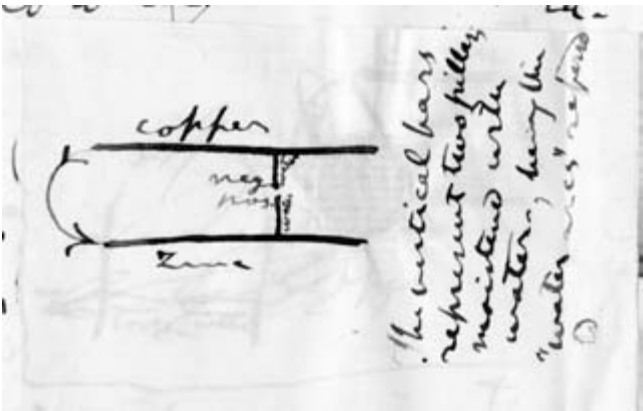 copper
neg
pos
Zinc
The vertical bars
represent two pillars
moistened with
water, being the
"water arcs" referred